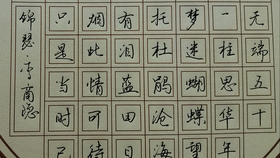 无端五十
一柱思华年
梦迷蝴蝶望
托杜鹃沧海
有泪蓝田日
烟此情可待
只是当时已
锦瑟 李商隐